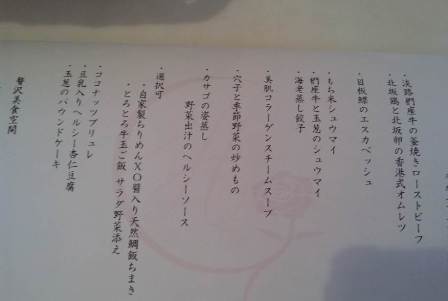 ・淡路椚座牛の釜焼きローストビーフ
・北坂鶏と北坂卵の香港式オムレツ
・目板鰈のエスカベッシュ
・もち米シュウマイ
・椚座牛と玉葱のシュウマイ
・海老蒸し餃子
・美肌コラーゲンスチームスープ
・穴子と季節野菜の炒めもの
・カサゴの姿蒸し
野菜出汁のヘルシーソース
・選択可
・自家製ちりめんXO醤入り天然鯛飯ちまき
・とろとろ牛玉ご飯 サラダ野菜添え
・ココナッツブリュレ
・豆乳入りヘルシー杏仁豆腐
・玉葱のパウンドケーキ
贅沢美食空間